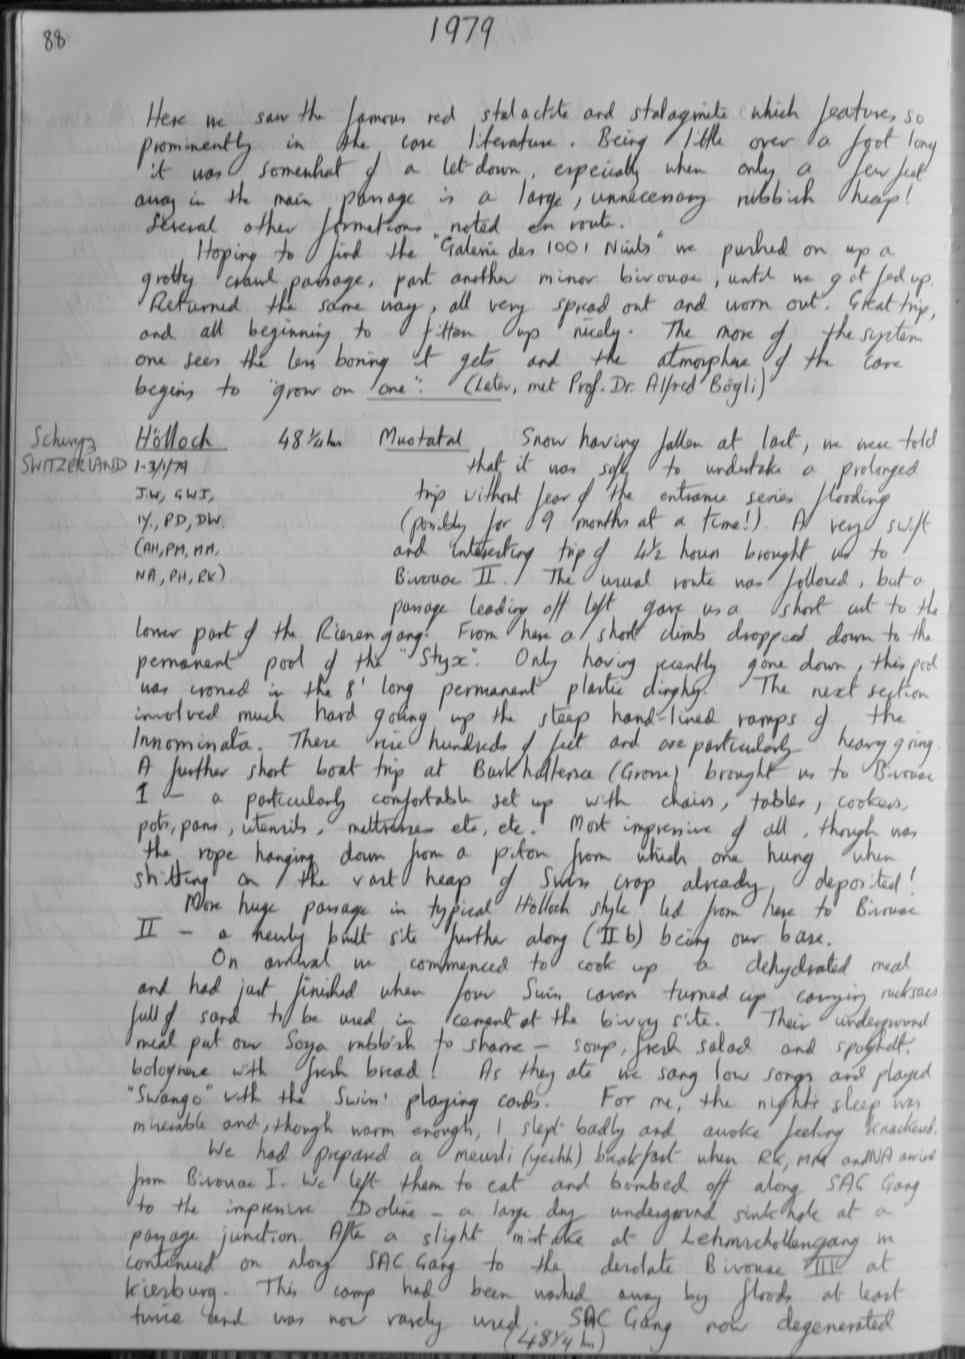 88
1979
Here we saw the famous red stalactite and stalagmite which features so
prominently in the cave literature. Being little over a foot long
it was somewhat of a let-down, especially when only a few feet
away in the main passage is a large, unnecessary rubbish heap!
Several other formations noted en route.
Hoping to find the "Galerie des 1001 Nuits" we pushed on up a
grotty crawl passage, past another minor bivouac, until we got fed up.
Returned the same way, all very spread out and worn out. Great trip,
and all beginning to fitten up nicely. The more of the system
one sees the less boring it gets and the atmosphere of the cave
begins to "grow on one". (Later, met Prof. Dr. Alfred Bögli)
Schwyz Hölloch 48¼ hrs Muotatal Snow having fallen at last, we were told
SWITZERLAND 1-3/1/79 that it was safe to undertake a prolonged
JW, GWJ, trip without fear of the entrance series flooding
IY, PD, DW. (possibly for 9 months at a time!). A very swift
(AH, PM, MM, and interesting trip of 4½ hours brought us to
NA, PH, RK) Bivouac II. The usual route was followed, but a
passage leading off left gave us a short cut to the
lower part of the Riesengang. From here a short climb dropped down to the
permanent pool of the "Styx". Only having recently gone down, this pool
was crossed in the 8' long permanent plastic dinghy. The next section
involved much hard going up the steep hand-lined ramps of the
Innominata. These rise hundreds of feet and are particularly heavy going.
A further short boat trip at (Grosse) brought us to Bivouac
I – a particularly comfortable set up with chairs, tables, cookers,
pots, pans, utensils, mattresses etc, etc. Most impressive of all, though was
the rope hanging down from a piton from which one hung when
shitting on the vast heap of Swiss crap already deposited!
More huge passage in typical Hölloch style led from here to Bivouac
II – a newly built site further along (IIb) being our base.
On arrival we commenced to cook up a dehydrated meal
and had just finished when four Swiss cavers turned up carrying rucksacs
full of sand to be used in cement at the bivvy site. Their underground
meal put our Soya rubbish to shame – soup, fresh salad and spaghetti
bolognese with fresh bread! As they ate we sang low songs and played
"Swango" with the Swiss' playing cards. For me, the night's sleep was
miserable and, though warm enough, I slept badly and awoke feeling knackered.
We had prepared a meusli (yechh) breakfast when RK, MM and NA arrived
from Bivouac I. We left them to eat and bombed off along SAC Gang
to the impressive Doline – a large dry underground sink hole at a
passage junction. After a slight mistake at Lehmschollengang we
continued on along SAC Gang to the desolate Bivouac III at
Kiesburg. This camp had been washed away by floods at least
twice and was now rarely used. SAC Gang now degenerated
(48¼ hrs)